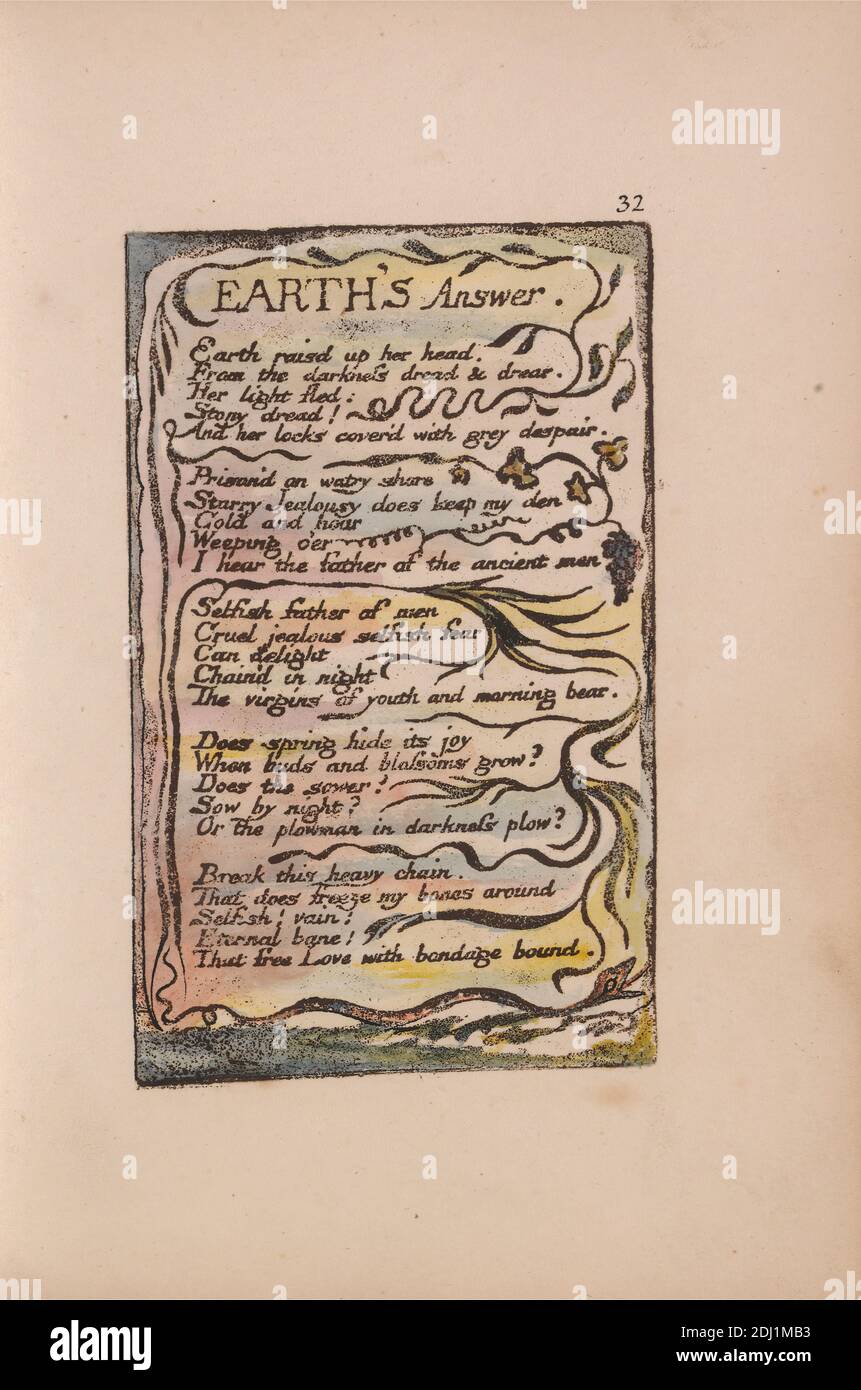 32
EARTH'S Answer.
Earth raisd up her head.
From the darkness dread & drear.
Her light fled:
Stony dread!
And her locks cover'd with grey despair.
Prison'd on watry shore
Starry Jealousy does keep my den
Cold and hoar
Weeping o'er
I hear the father of the ancient men
Selfish father of men
Cruel jealous selfish fear
Can delight
Chain'd in night
The virgins of youth and morning bear.
Does spring hide its joy
When buds and blossoms grow?
Does the sower?
Sow by night?
Or the plowman in darkness plow?
Break this heavy chain.
That does freeze my bones around
Selfish! vain!
Eternal bane!
That free Love with bondage bound.
a a
alamy
a a
a a a
a
alamy
a a a
alamy
Image ID: 2DJ1MB3
www.alamy.com